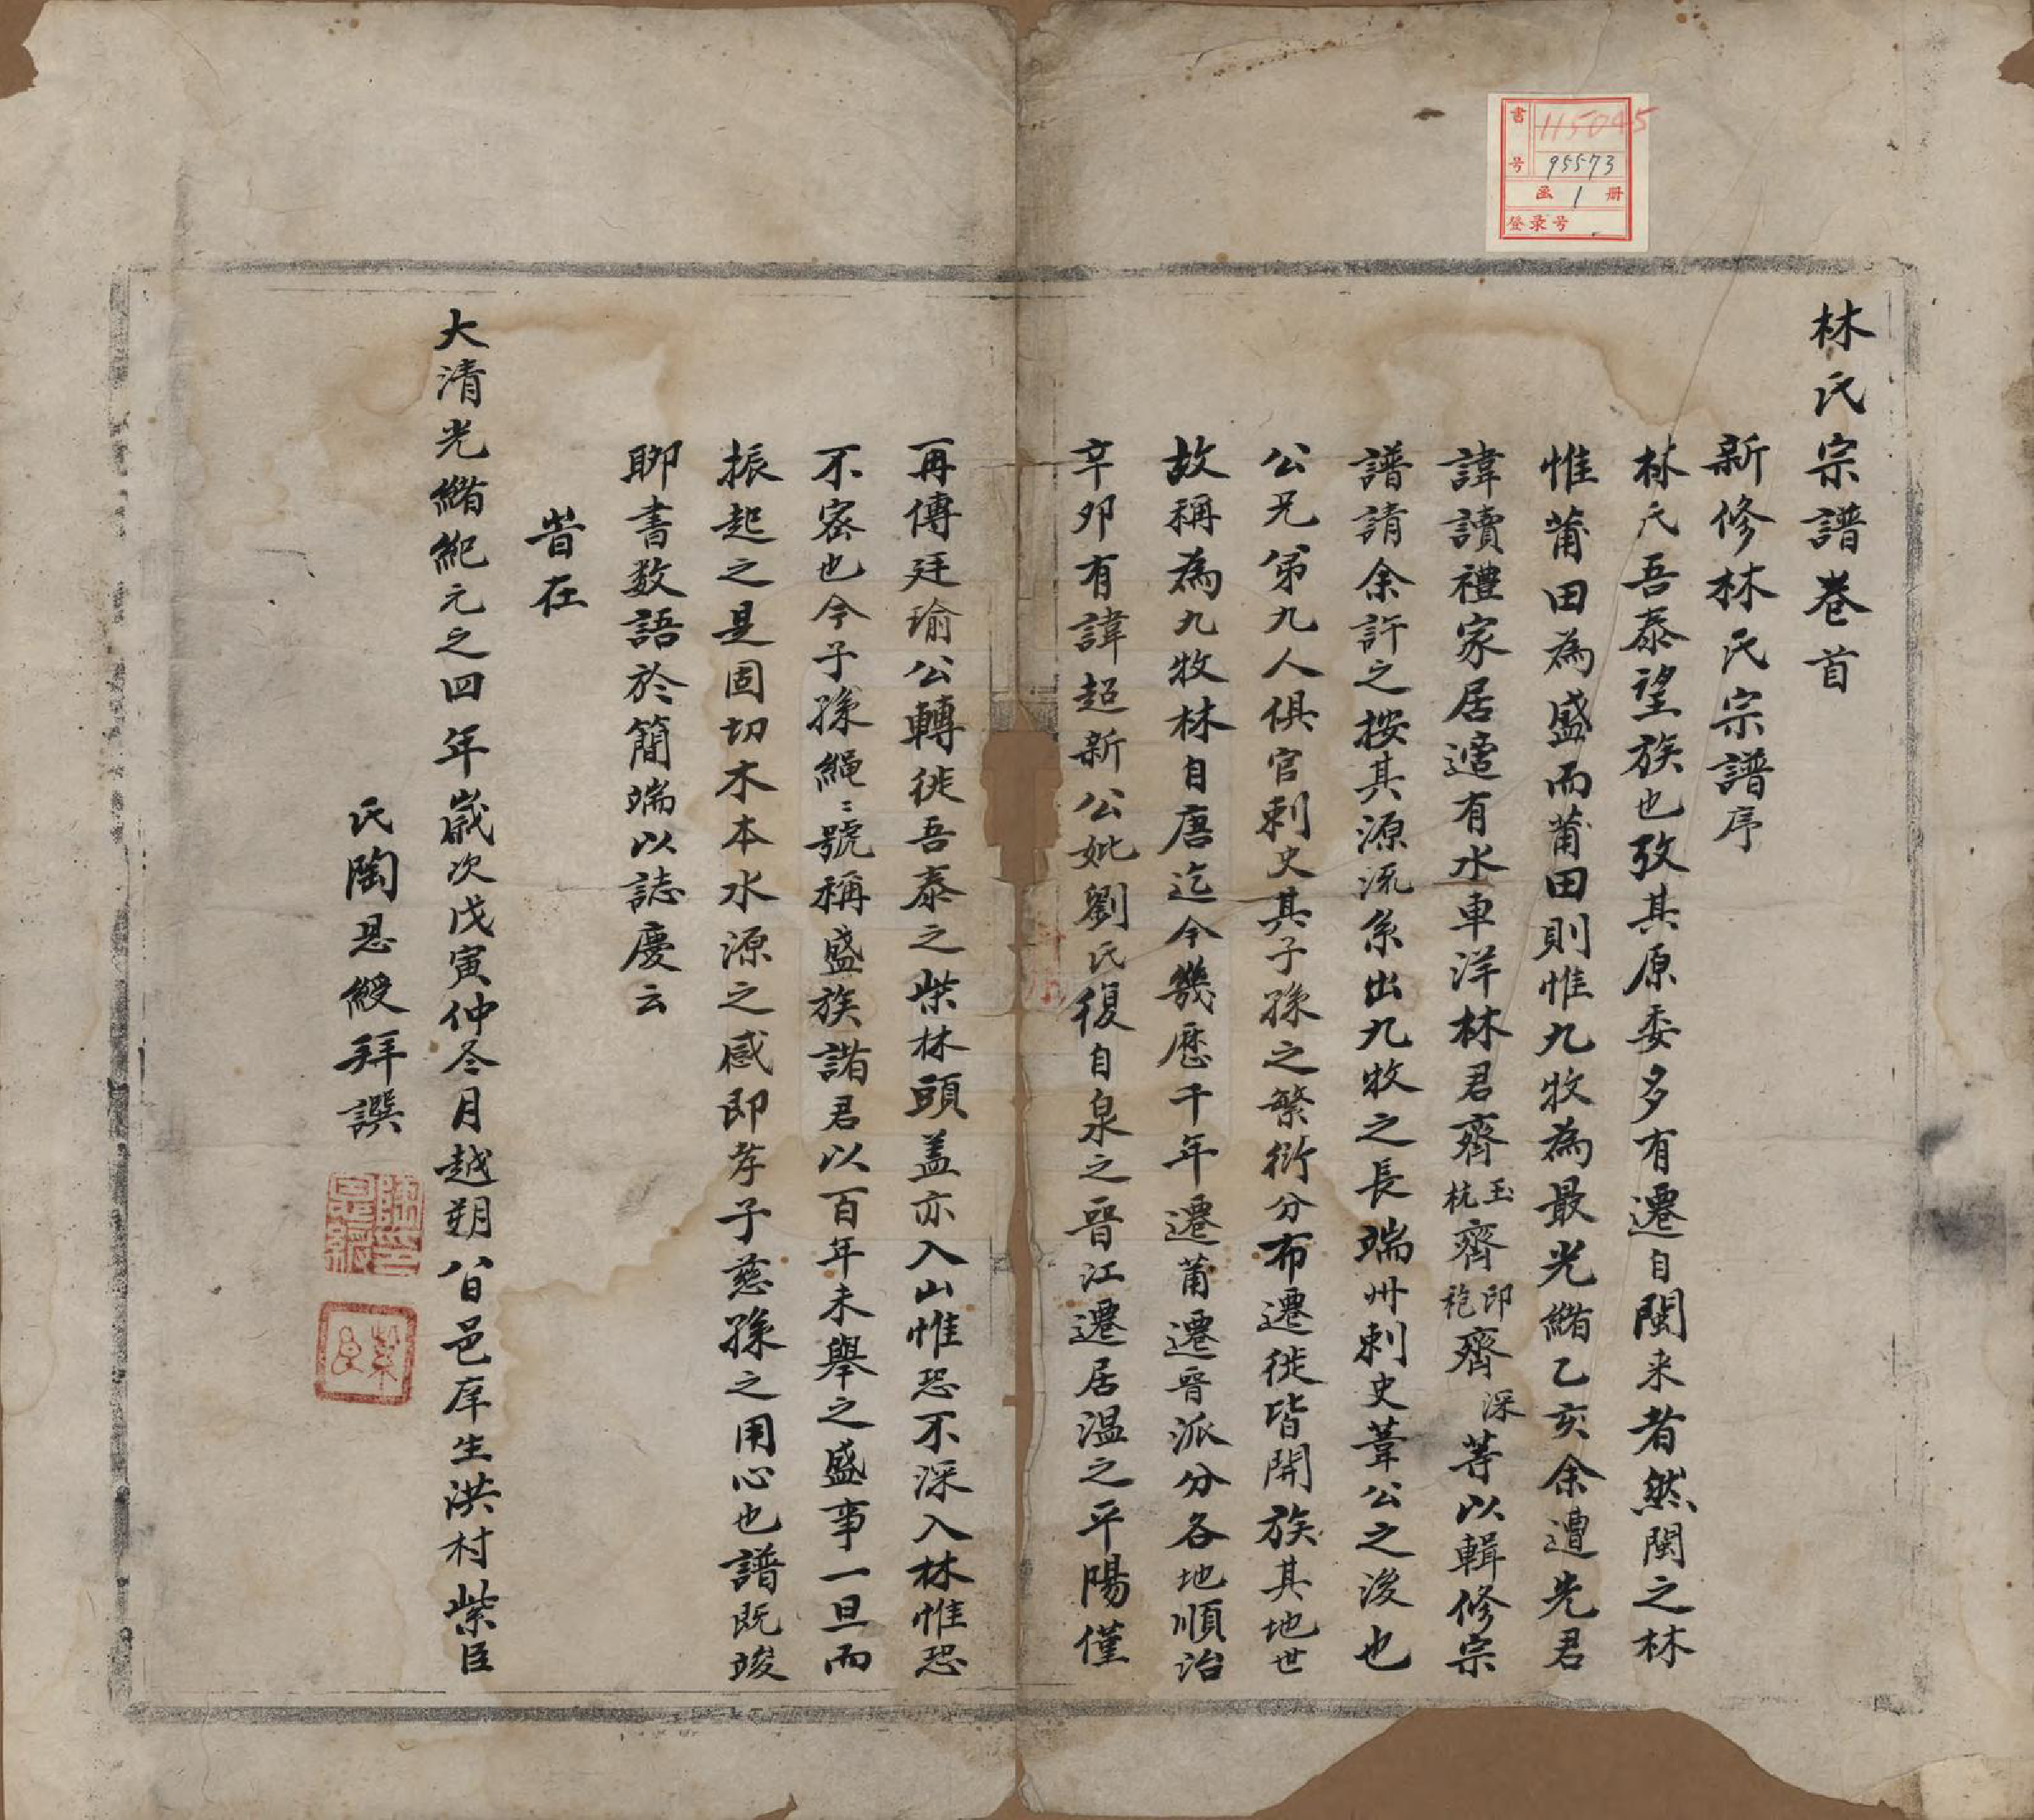 林氏宗譜卷首
新修林氏宗譜序
林氏吾泰望族也攷其原委多有遷自閩来者然閩之林
惟莆田為盛而莆田則惟九牧為最光緒乙亥余遭先君
諱讀禮家居適有水車洋林君齊玉杭齊印袍齊深等以輯修宗
譜請余許之按其源流系出九牧之長瑞州刺史葦公之後也
公兄弟九人俱官刺史其子孫之繁衍分布遷徙皆開族其地世
故稱為九牧林自唐迄今幾歷千年遷莆遷晉派分各地順治
辛夘有諱超新公妣劉氏復自泉之晉江遷居溫之平陽僅
再傳廷瑜公轉徙吾泰之柴林頭盖亦入山惟恐不深入林惟恐
不密也今子孫繩〻號稱盛族諸君以百年未舉之盛事一旦而
振起之是固切木本水源之感即孝子慈孫之用心也譜既竣
聊書数語於簡端以誌慶云
旹在
大清光緒紀元之四年歲次戊寅仲冬月越朔八日邑庠生洪村紫臣
氏陶恩綬拜譔
書号 115045
95573
函 1 册
登录号